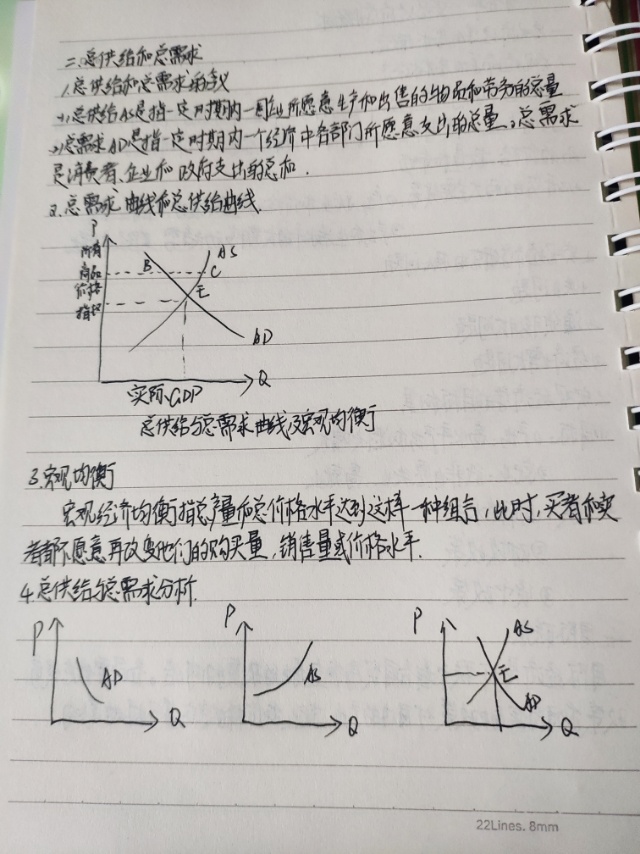 二.总供给和总需求
1.总供给和总需求的含义
(1)总供给AS是指一定时期内一国企业所愿意生产和出售的物品和劳务的总量
(2)总需求AD是指一定时期内一个经济中各部门所愿意支出的总量,总需求
是消费者、企业和政府支出的总和.
2.总需求曲线和总供给曲线.
P
所有
商品
价格
指数
B
AS
C
E
AD
Q
实际GDP
总供给与总需求曲线及宏观均衡
3.宏观均衡
宏观经济均衡指总产量和总价格水平达到这样一种组合,此时,买者和卖
者都不愿意再改变他们的购买量,销售量或价格水平.
4.总供给与总需求分析.
P
AD
Q
P
AS
Q
P
AS
E
AD
Q
22Lines. 8mm